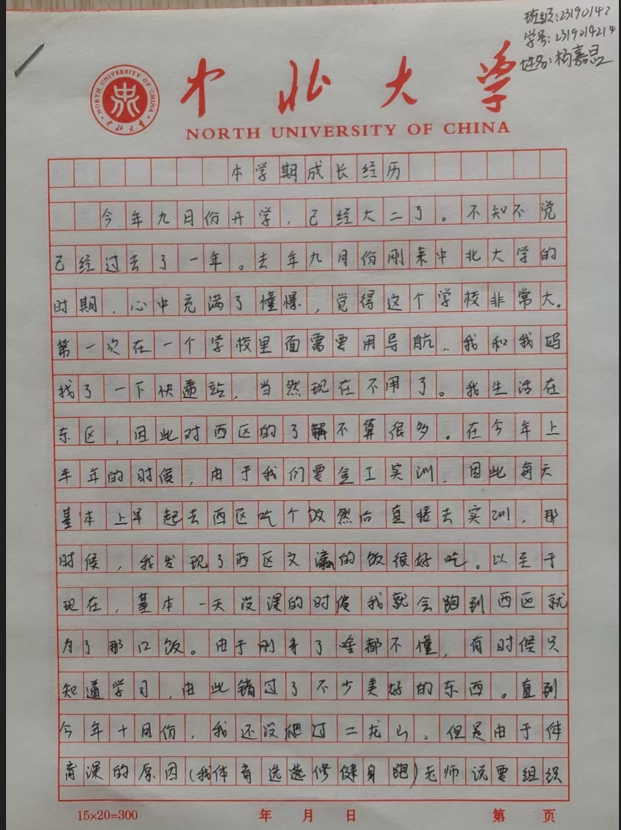 班级:23190142
学号:2319014214
姓名:杨嘉
NORTH UNIVERSITY OF CHINA
中北大学
中北大学
NORTH UNIVERSITY OF CHINA
本学期成长经历
今年九月份开学，已经大二了。不知不觉
已经过去了一年。去年九月份刚来中北大学的
时期，心中充满了懂憬，觉得这个学校非常大。
第一次在一个学校里面需要用导航..我和我妈
找了一下快递站，当然现在不用了。我生活在
东区，因此对西区的了解不算很多。在今年上
半年的时候，由于我们要金工实训，因此每天
基本上早起去西区吃个饭然后直接去实训，那
时候，我发现了西区文瀛的饭很好吃。以至于
现在，基本一天没课的时候我就会跑到西区就
为了那口饭。由于刚来了啥都不懂，有时候只
知道学习，由此错过了不少美好的东西。直到
今年十月份，我还没爬过二龙山。但是由于体
育课的原因(我体育选修健身跑)老师说要组织
15×20=300 年 月 日 第 页